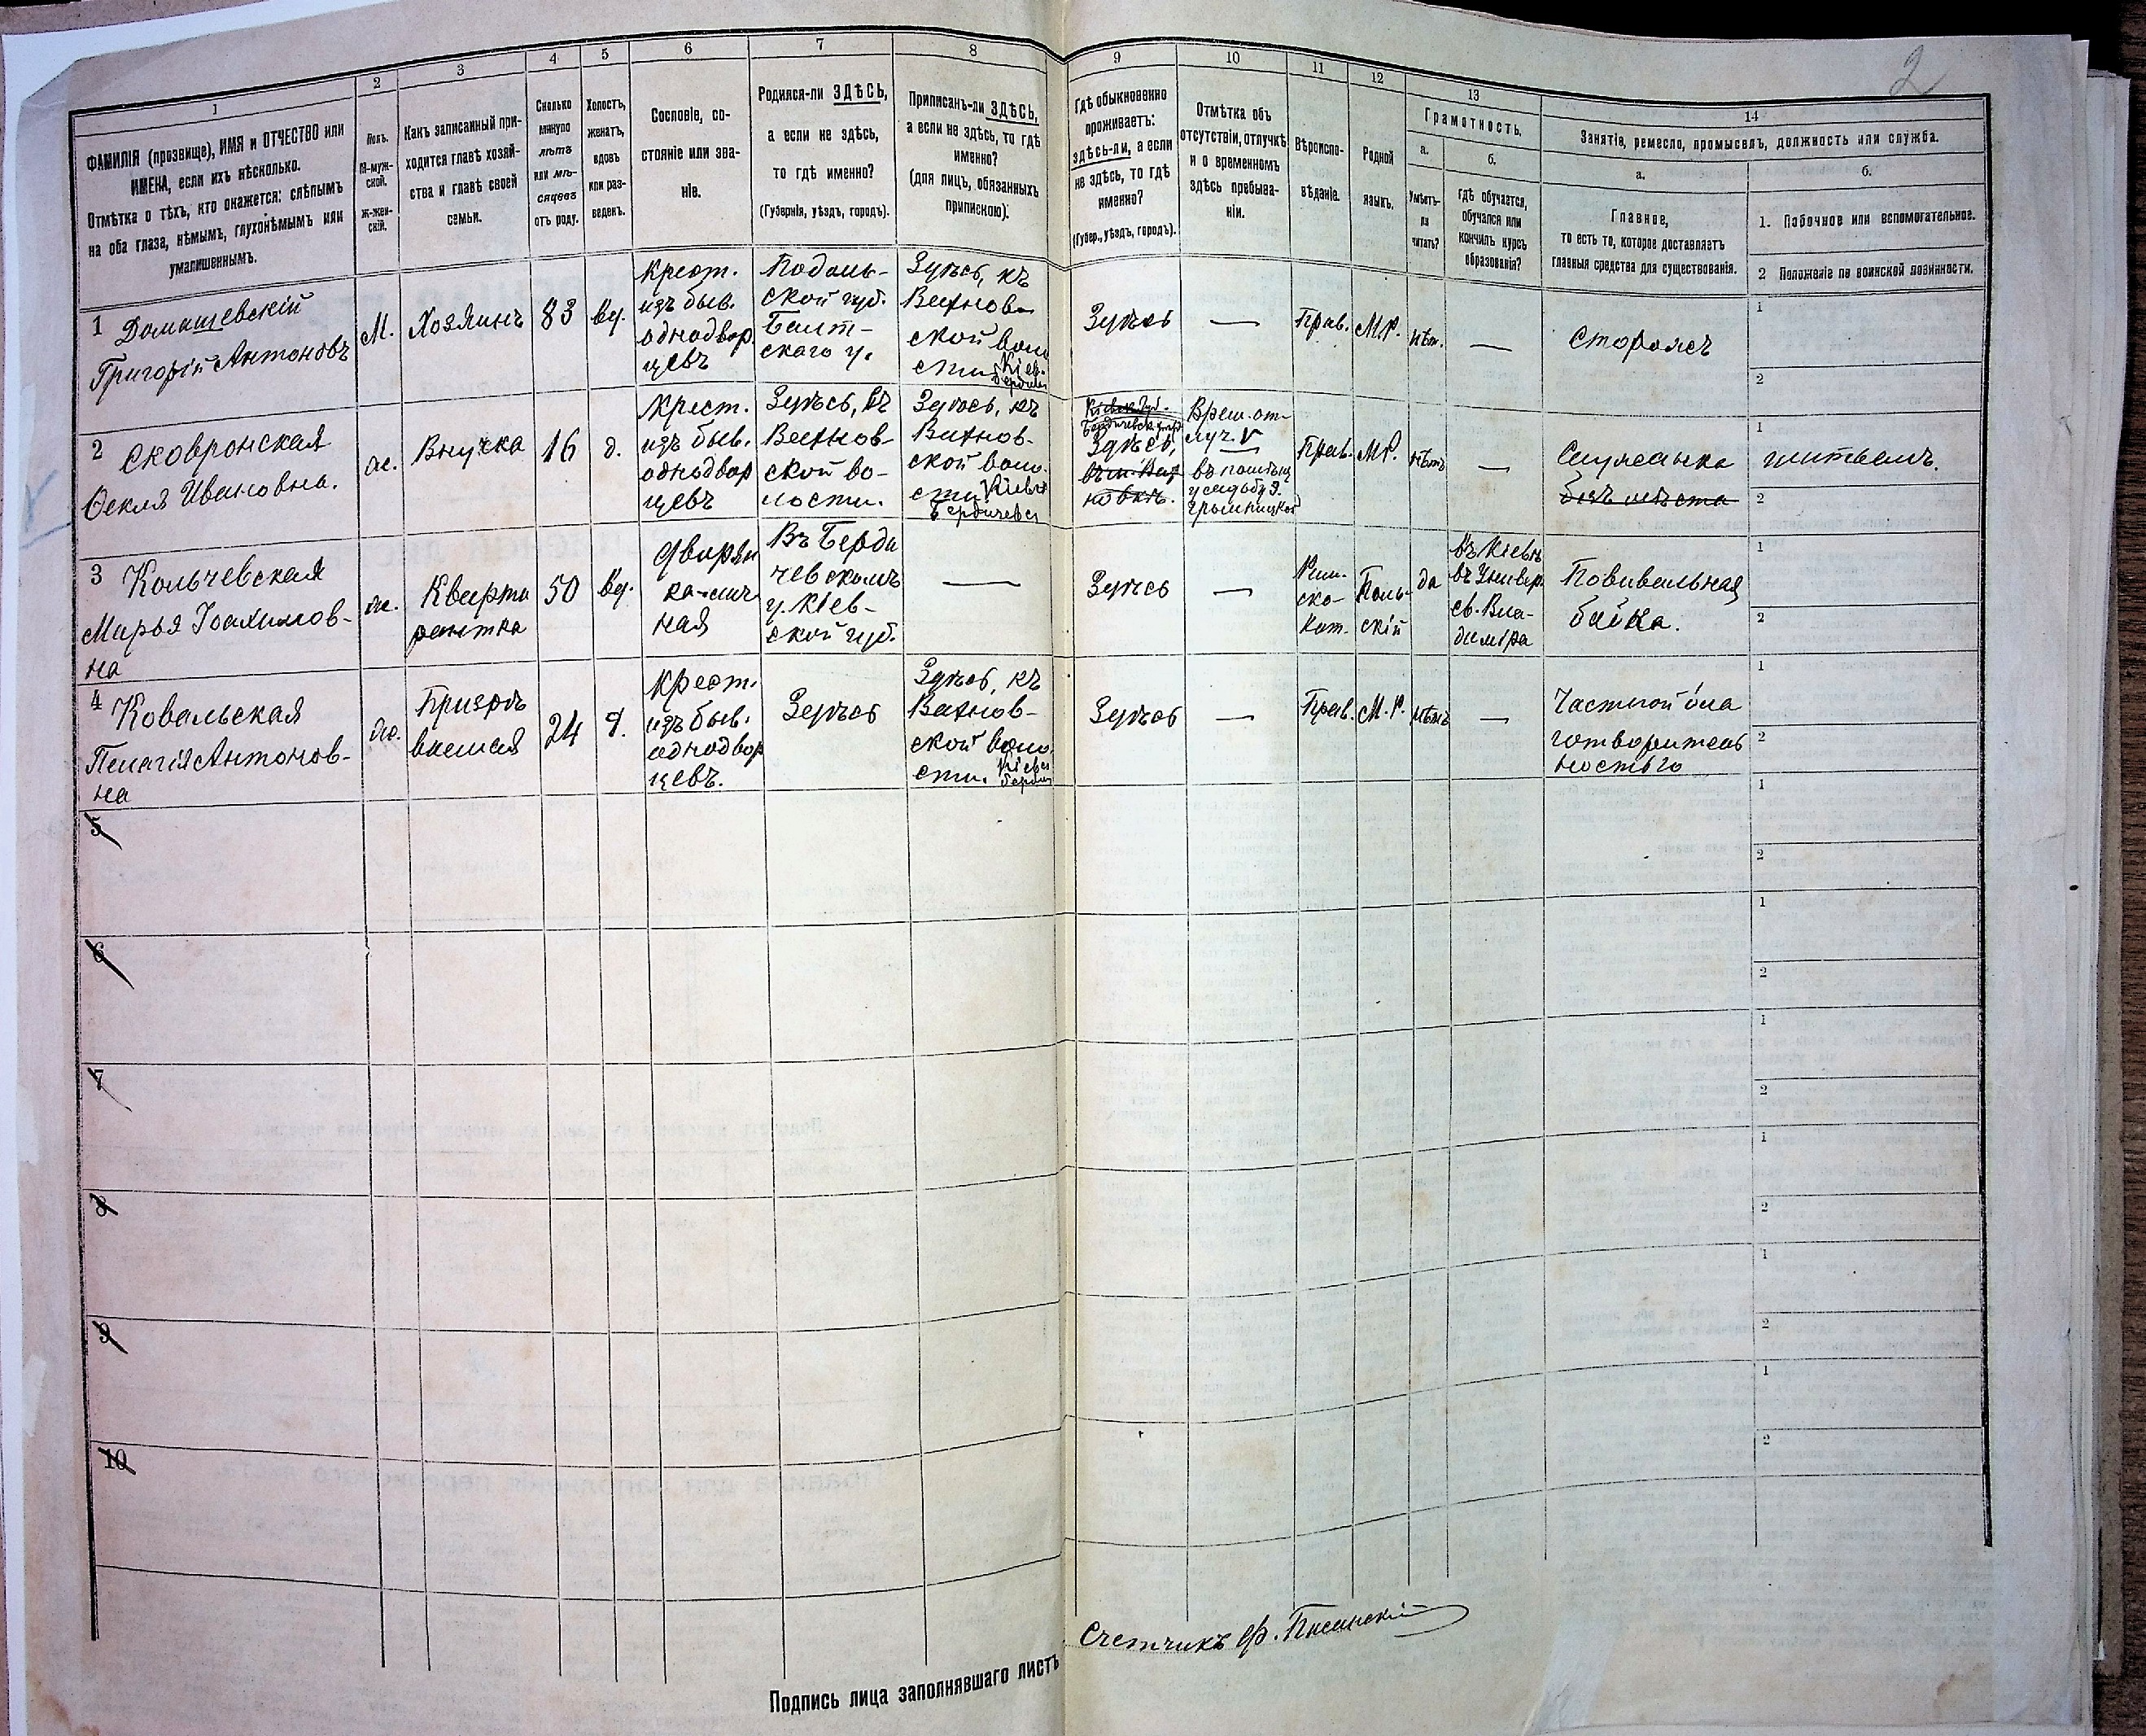 2
1
ФАМИЛІЯ (прозвище), ИМЯ и ОТЧЕСТВО или
ИМЕНА, если ихъ нѣсколько.
Отмѣтка о тѣхъ, кто окажется: слѣпымъ
на оба глаза, нѣмымъ, глухонѣмымъ или
умалишеннымъ.
2
Полъ.
М-муж-
ской.
Ж-жен-
скій.
3
Какъ записанный при-
ходится главѣ хозяй-
ства и главѣ своей
семьи.
4
Сколько
минуло
лѣтъ
или мѣ-
сяцевъ
отъ роду.
5
Холостъ,
женатъ,
вдовъ
или раз-
веденъ.
6
Сословіе, со-
стояніе или зва-
ніе.
7
Родился-ли ЗДѢСЬ,
а если не здѣсь,
то гдѣ именно?
(Губернія, уѣздъ, городъ).
8
Приписанъ-ли ЗДѢСЬ,
а если не здѣсь, то гдѣ
именно?
(для лицъ, обязанныхъ
припискою).
9
Гдѣ обыкновенно
проживаетъ:
здѣсь-ли, а если
не здѣсь, то гдѣ
именно?
(Губер., уѣздъ, городъ).
10
Отмѣтка объ
отсутствіи, отлучкѣ
и о временномъ
здѣсь пребыва-
ніи.
11
Вѣроиспо-
вѣданіе.
12
Родной
языкъ.
13
Грамотность.
а.
Умѣетъ-
ли
читать?
б.
гдѣ обучается,
обучался или
кончилъ курсъ
образованія?
14
Занятіе, ремесло, промыселъ, должность или служба.
а.
Главное,
то есть то, которое доставляетъ
главныя средства для существованія.
б.
1. Побочное или вспомогательное.
2 Положеніе по воинской повинности.
1 Домашевскій
Григорій Антоновъ
М.
Хозяинъ
83
вд.
Крест.
изъ быв.
однодвор
цевъ
Подоль-
ской губ.
Балт-
скаго у.
Здѣсь, къ
Вахнов-
ской воло
сти Кіев.
Бердич
Здѣсь
—
Прав.
М.Р.
нѣт.
—
Сторожъ
1
2
2 Сковронская
Ѳекла Ивановна.
ж.
Внучка
16
д.
Крест.
изъ быв.
однодвор
цевъ
Здѣсь, въ
Вахнов-
ской во-
лости.
Здѣсь, къ
Вахнов-
ской воло.
сти Кіевс
Бердичевс
Здѣсь,
Врем. от-
луч. V
Прав.
М.Р.
нѣтъ
—
Служанка
безъ мѣста
1
жительм.
2
3 Кольчевская
Марья Іоахимов-
на
ж.
Кварти
рантка
50
вд.
Дворян
ка-лич
ная
Въ Берди
чевскомъ
у. Кіев-
ской губ.
—
Здѣсь
—
Рим-
ско-
кат.
Поль-
скій
да
въ Кіевѣ
въ Универ.
св. Вла-
диміра
Повивальная
бабка.
1
2
4 Ковальская
Пелагія Антонов-
на
ж.
Призрѣ
ваемая
24
д.
Крест.
изъ быв.
однодвор
цевъ.
Здѣсь
Здѣсь, къ
Вахнов-
ской воло.
сти. Кіевс
Бердич
Здѣсь
—
Прав.
М.Р.
нѣтъ
—
Частной бла
готворитель
ностью
1
2
5
1
2
6
1
2
7
1
2
8
1
2
9
1
2
10
1
2
Счетчикъ Ф.
Подпись лица заполнявшаго листъ